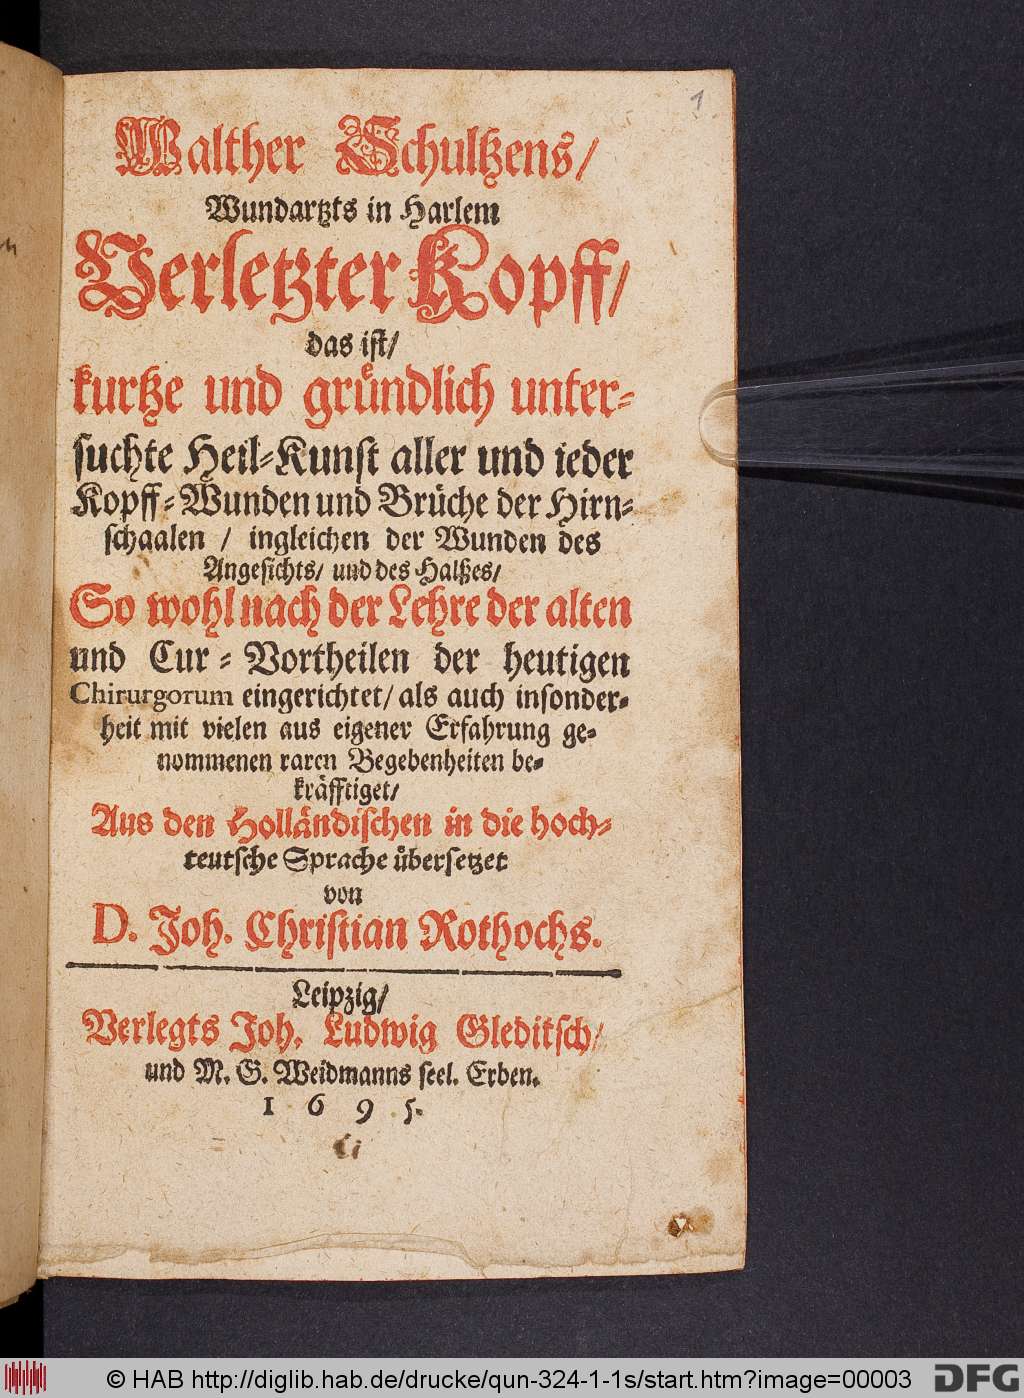 1
Walther Schultzens/
Wundartzts in Harlem
Verletzter Kopff/
das ist/
kurtze und gruͤndlich unter-
suchte Heil-Kunst aller und ieder
Kopff-Wunden und Bruͤche der Hirn-
schaalen / ingleichen der Wunden des
Angesichts/ und des Halßes/
So wohl nach der Lehre der alten
und Cur-Vortheilen der heutigen
Chirurgorum eingerichtet/ als auch insonder-
heit mit vielen aus eigener Erfahrung ge-
nommenen raren Begebenheiten be-
kräfftiget/
Aus den Holländischen in die hoch-
teutsche Sprache uͤbersetzet
von
D. Joh. Christian Rothochs.
Leipzig/
Verlegts Joh. Ludwig Gleditsch/
und M. G. Weidmanns seel. Erben.
1 6 9 5.
© HAB http://diglib.hab.de/drucke/qun-324-1-1s/start.htm?image=00003
DFG